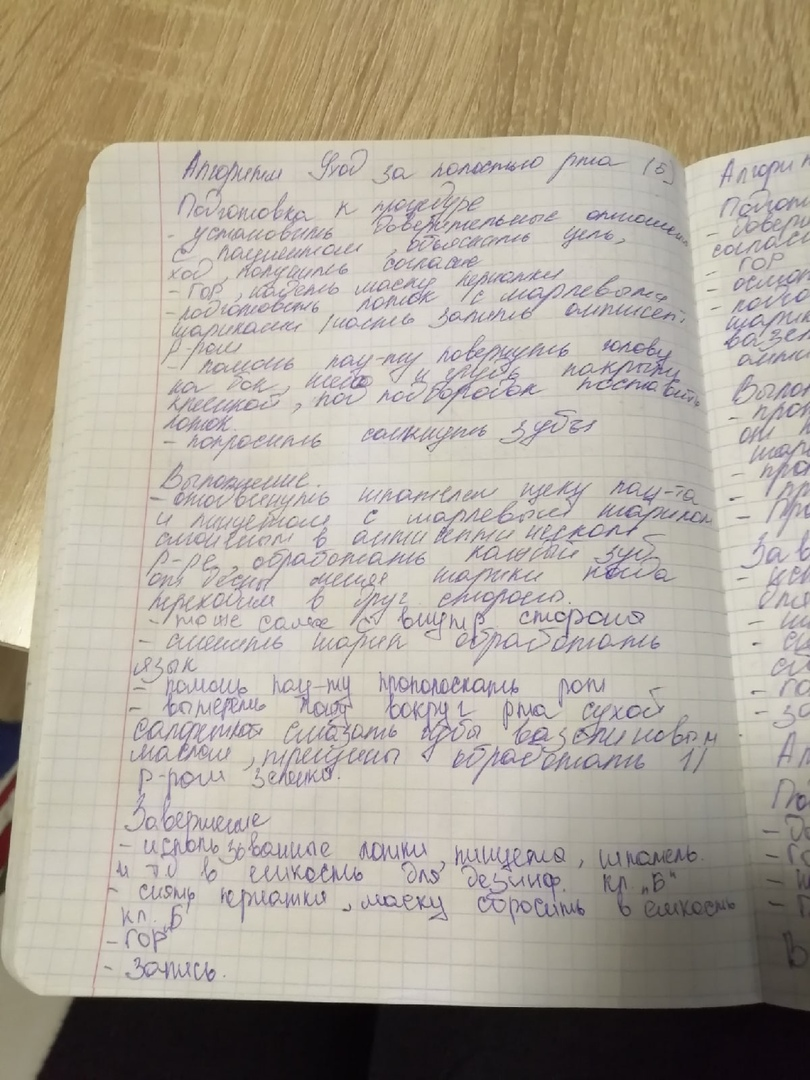 Алгоритм Уход за полостью рта (5)
Подготовка к процедуре
- установить доверительные отношения
с пациентом, объяснить цель,
ход получить согласие
- ГОР, надеть маску перчатки
- подготовить лоток с марлевыми
шариками часть залить антисепт.
р-ром
- помочь пац-ту повернуть голову
на бок, шею и грудь накрыть
клеенкой, под подбородок поставить
лоток.
- попросить сомкнуть зубы
Выполнение.
- отодвинуть шпателем щеку пац-та
и пинцетом с марлевым шариком
смоченным в антисептическом
р-ре, обработать каждый зуб
от десны меняя шарики
переходим в друг сторону.
- тоже самое с внутр стороны
- сменить шарик обработать
язык
- помочь пац-ту прополоскать рот
- вытереть вокруг рта сухой
салфеткой смазать губы вазелиновым
маслом, трещины обработать 1%
р-ром зеленки.
Завершение
- использованные лотки, пинцета, шпатель
и т.д в емкость для дезинф. кл. "Б"
- снять перчатки, маску сбросить в емкость
кл. Б"
- ГОР
- Запись.
Алгори
Подгот
- довери
соглас
- ГОР
- осмот
- подго
шарик
вазел
Выпол
- про
от
шар
- про
- пр
- Пр
Зав
- исп
для
- го
- за
Ал
По
- Го
В